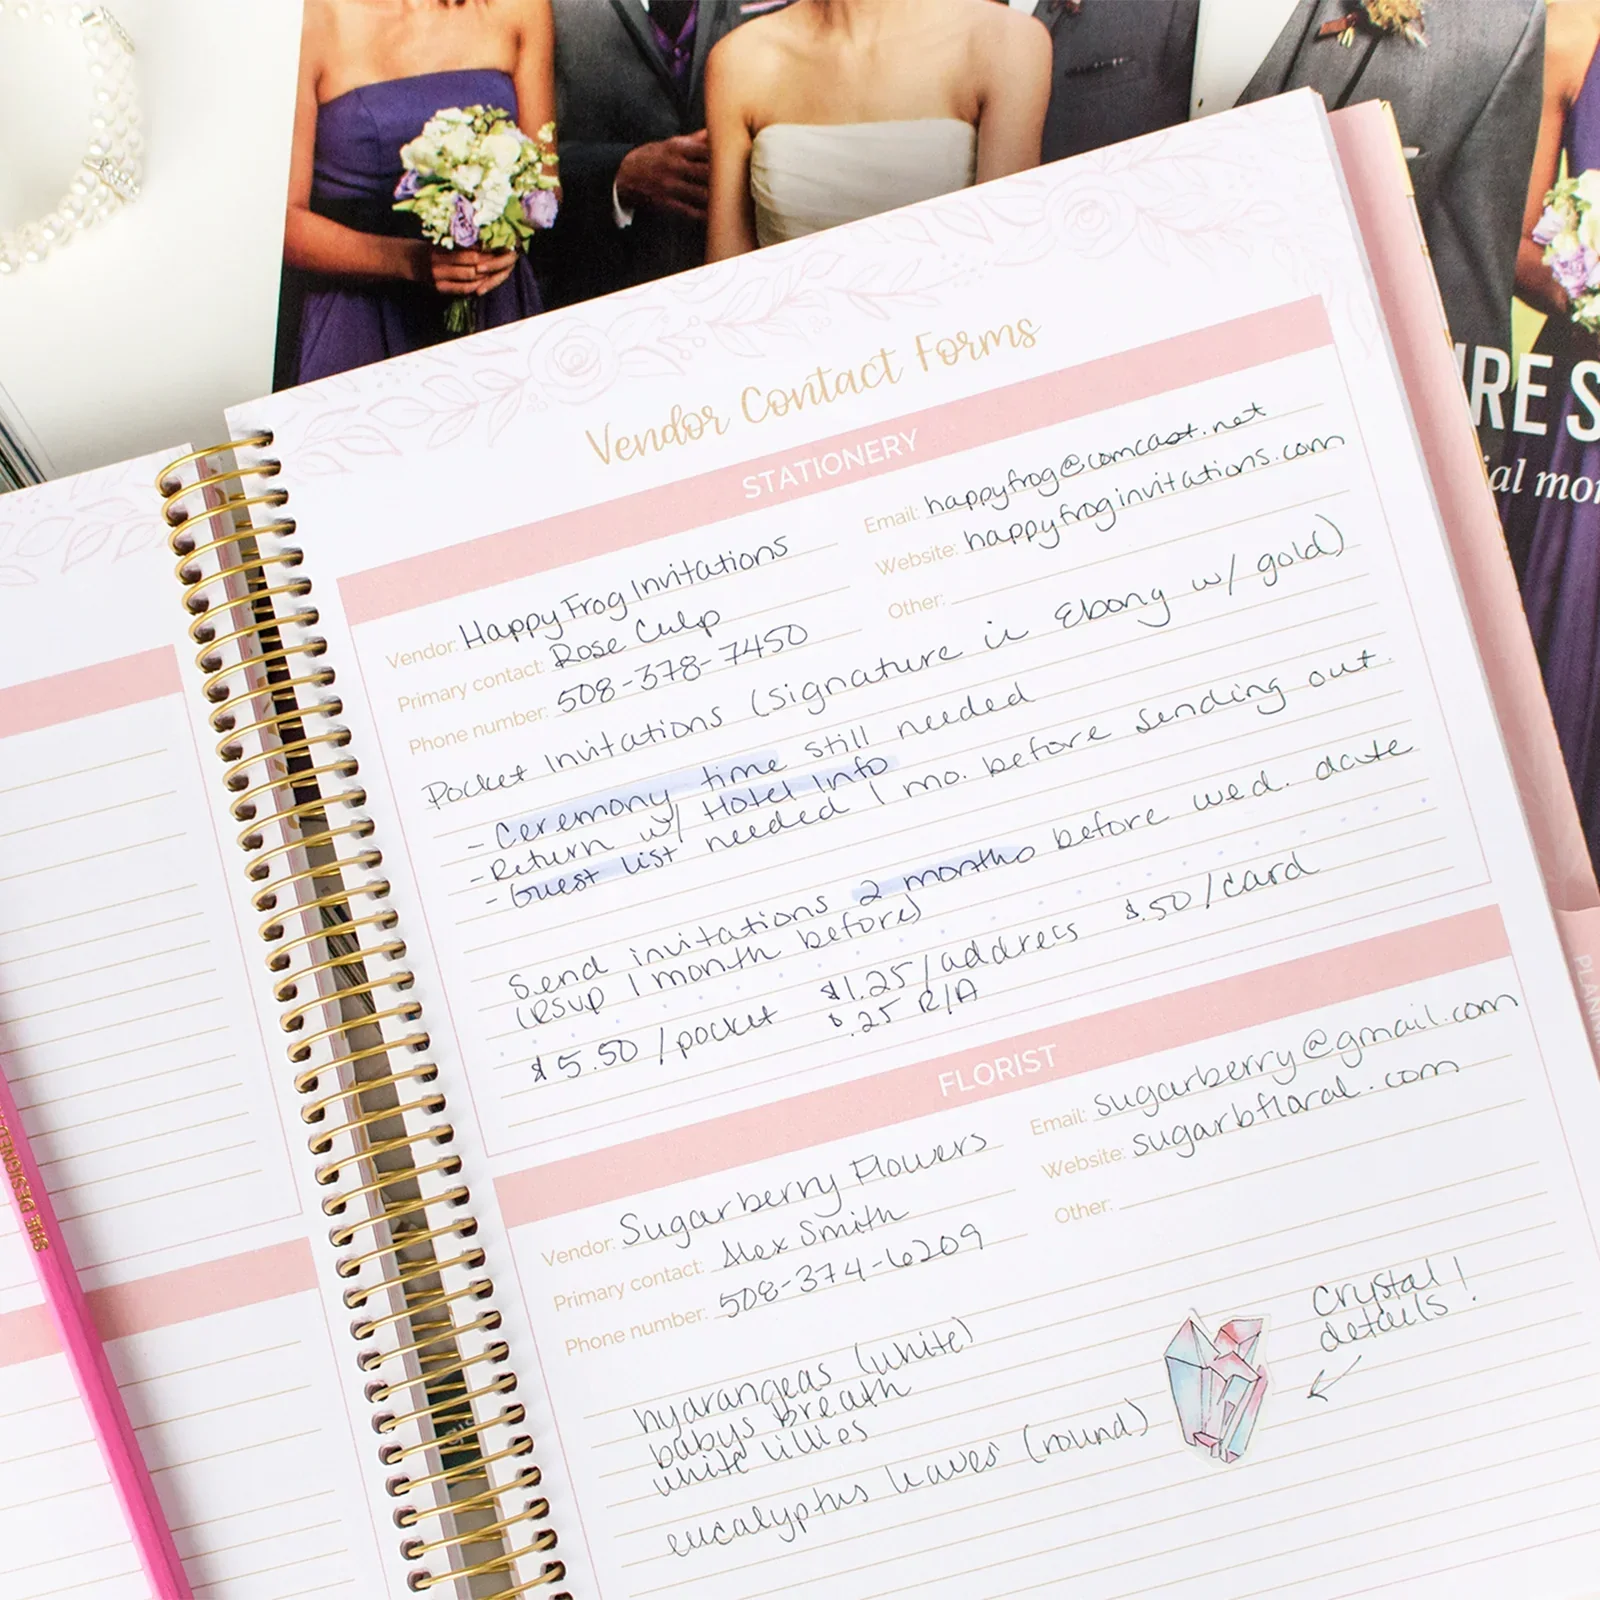 Vendor Contact Forms
STATIONERY
Vendor: Happy Frog Invitations
Primary contact: Rose Culp
Phone number: 508-378-7450
Email: happyfrog@comcast.net
Website: happyfroginvitations.com
Other:
Pocket Invitations (signature in Ebony w/ gold)
- Ceremony time still needed
- Return w/ Hotel Info
- Guest list needed 1 mo. before sending out.
Send invitations 2 months before wed. date
(RSVP 1 month before)
$5.50/pocket $1.25/address $.50/card
$.25 R/A
FLORIST
Vendor: Sugarberry Flowers
Primary contact: Alex Smith
Phone number: 508-374-6209
Email: sugarberry@gmail.com
Website: sugarbfloral.com
Other:
hydrangeas (white)
babys breath
white lillies
eucalyptus leaves (round)
Crystal
details!
RE S
ial mo